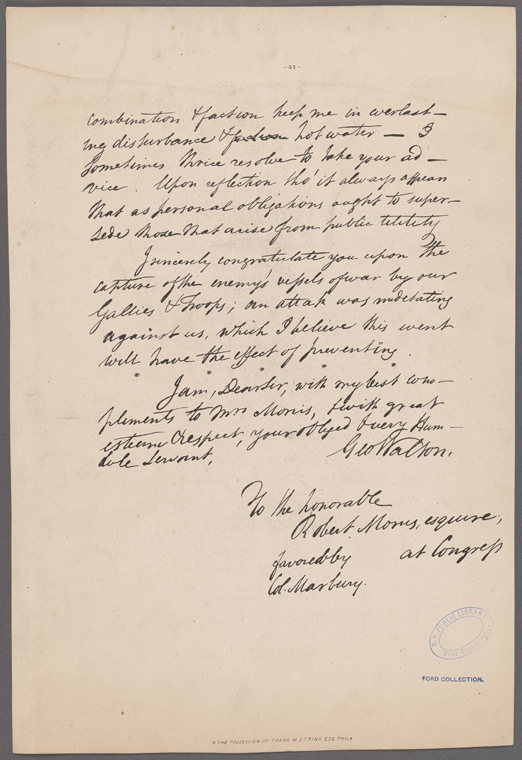 -2-
combination & faction keep me in everlast-
ing disturbance & faction hot water — I
Sometimes thrice resolve to take your ad-
vice. Upon reflection tho' it always appears
that as personal obligations ought to super-
sede those that arise from public utility
I sincerely congratulate you upon the
capture of the enemy's vessels of war by our
Gallies & Troops; an attak was meditating
against us, which I believe this event
will have the effect of preventing.
" " " "
I am, Dear Sir, with my best com-
pliments to Mrs Morris, & with great
esteem & respect, your obliged & very Hum-
ble Servant,
Geo Walton.
To the honorable
Robert Morris, esquire,
favored by at Congress
Col. Marbury.
N.Y. PUBLIC LIBRARY
FORD COLLECTION.
IN THE POSSESSION OF FRANK M. ETTING ESQ PHILA